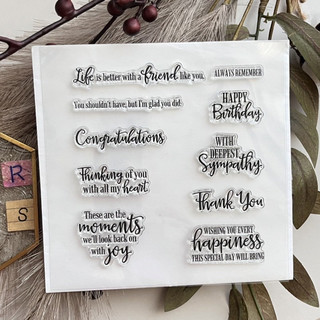 Life is better with a friend like you,
ALWAYS REMEMBER
You shouldn't have, but I'm glad you did.
HAPPY
Birthday
Congratulations
WITH
DEEPEST
Sympathy
Thinking of you
with all my heart
Thank You
These are the
moments
we'll look back on
with joy
WISHING YOU EVERY
happiness
THIS SPECIAL DAY WILL BRING
R
S